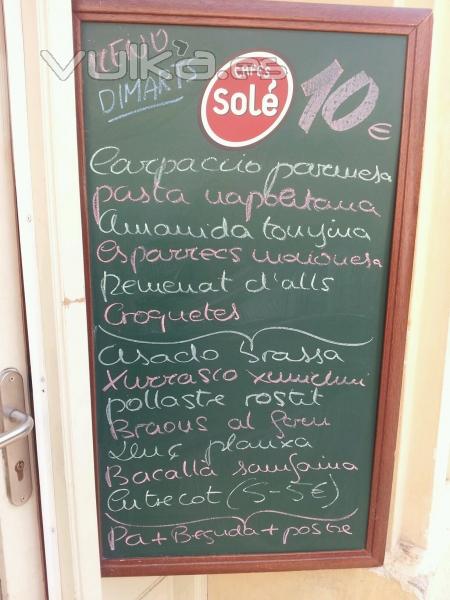 MENÚ
DIMARTS
vulka.es
CAFÈS
Solé
10€
Carpaccio parmesa
pasta napolitana
Amanida tonyina
Esparrecs maionesa
Remenat d'alls
Croquetes
Asado Brassa
Xurrasco xumichurri
pollastre rostit
Braous al forn
Lluç planxa
Bacallà samfaina
Entrecot (S-5€)
Pa + Beguda + postre